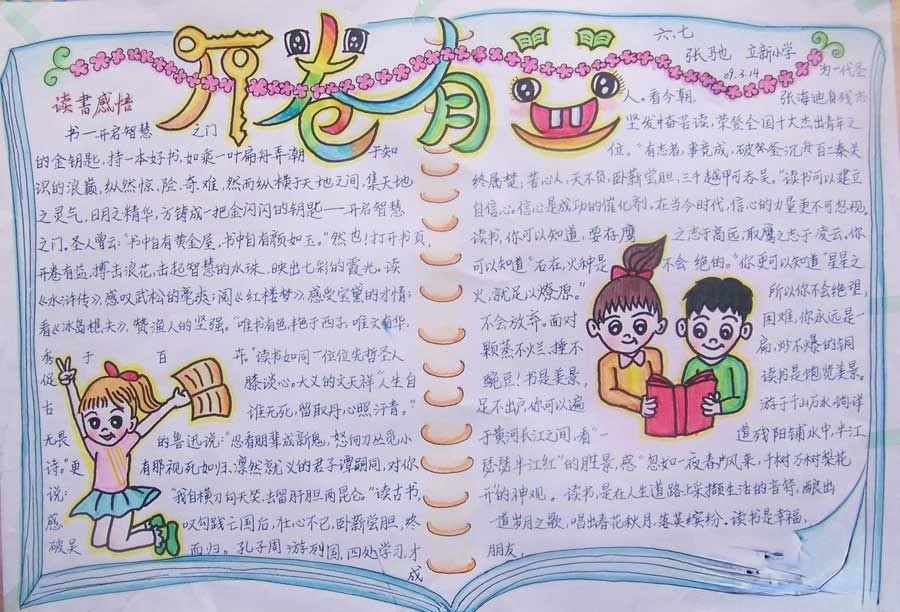 开卷有益
六.七
张驰 立新小学
09.3.14
读書感悟
书一开启智慧 之门
的金钥匙,持一本好书,如乘一叶扁舟弄潮 于知
识的浪巅,纵然惊,险,奇,难,然而纵横于天地之间,集天地
之灵气,日月之精华,方铸成一把金闪闪的钥匙——开启智慧
之门,圣人曾云:"书中自有黄金屋,书中自有颜如玉。"然也!打开书页,
开卷有益,搏击浪花,击起智慧的水珠,映出七彩的霞光。读
《水浒传》,感叹武松的豪爽;阅《红楼梦》,感受宝黛的才情;
看《冰岛根夫》,赞渔人的坚强。"唯书有色,艳于西子,唯文有华,
秀于百卉。"读书如同一位位先哲圣人
促膝谈心。大义的文天祥"人生自
古谁无死,留取丹心照汗青。"
无畏的鲁迅说:"忍看朋辈成新鬼,怒向刀丛觅小
诗。"更有那视死如归,凛然就义的君子谭嗣同,对你
说:"我自横刀向天笑,去留肝胆两昆仑。"读古书,
感叹勾践亡国后,壮心不已,卧薪尝胆,终
破吴而归。孔子周游列国,四处学习,才
成
为一代圣
人。看今朝, 张海迪身残志
坚发忡奋苦读,荣登全国十大杰出青年之
位。"有志者,事竟成,破釜沉舟百二秦关
终属楚,苦心人,天不负,卧薪尝胆,三千越甲可吞吴。"读书可以建立
自信心。信心是成功的催化剂。在当今时代,信心的力量更不可忽视。
读书,你可以知道,要存鹰 之志于高远,取鹰之志于凌云。你
可以知道"石在,火种是 不会绝的。"你更可以知道"星星之
火,就足以燎原。" 所以你不会绝望,
不会放弃。面对 困难,你永远是一
颗蒸不烂、捶不 扁,炒不爆的铜
豌豆!书是美景, 读书是饱览美景。
足不出户,你可以遍 游于千山万水,徜徉
于黄河长江之间,看"一道残阳铺水中,半江
瑟瑟半江红"的胜景,感"忽如一夜春风来,千树万树梨花
开"的神观。读书,是在人生道路上采撷生活的音符,
一道岁月之歌,唱出春花秋月,落英缤纷。读书是幸福,
朋友,